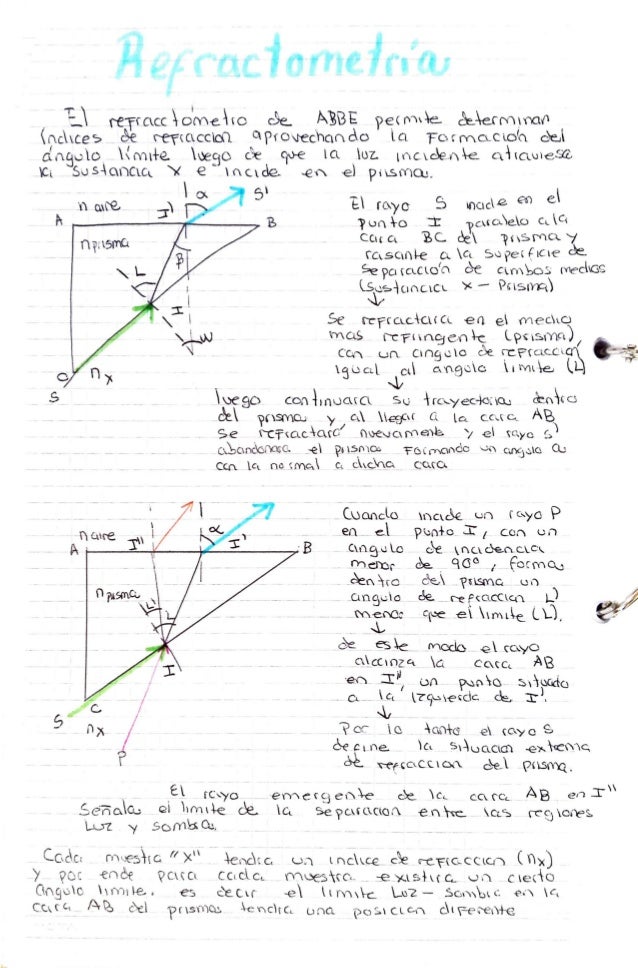 Refractometría
El refracctometro de ABBE permite determinan
índices de refraccion aprovechando la Formación del
ángulo límite luego de que la luz incidente atraviese
la sustancia x e incide en el prisma.
n aire
I'
α
S'
A
B
n prisma
β
L
I
W
C
S
nx
El rayo S incide en el
punto I paralelo a la
cara BC del prisma y
rasante a la superficie de
separación de ambos medios
(sustancia x - Prisma)
Se refractara en el medio
mas refringente (prisma)
con un angulo de refraccion
igual al angulo limite (L)
luego continuara su trayectoria dentro
del prisma y al llegar a la cara AB
se refractará nuevamente y el rayo s'
abandonara el prisma Formando un angulo α
con la normal a dicha cara
Cuando incide un rayo P
en el punto I, con un
angulo de incidencia
menor de 90º, forma
dentro del prisma un
angulo de refraccion L'
menor que el limite (L).
de este modo el rayo
alcanza la cara AB
en I'', un punto situado
a la izquierda de I'.
Por lo tanto el rayo S
define la situacion extrema
de refraccion del prisma.
n aire
I''
α
I'
A
B
n prisma
L'
L
I
C
S
nx
P
El rayo emergente de la cara AB en I''
Señala el limite de la separacion entre las regiones
Luz y sombra.
Cada muestra "x" tendra un indice de refraccion (nx)
y por ende para cada muestra existira un cierto
angulo limite, es decir el limite Luz - Sombra en la
cara AB del prisma tendra una posicion diferente